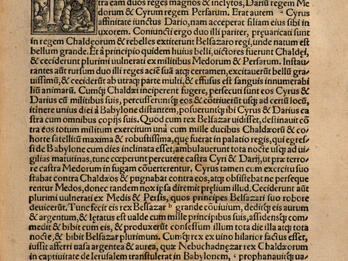 tra eam duos reges magnos & inclytos, Darium regem Me
dorum & Cyrum regem Persarum. Erat autem Cyrus
affinitate iunctus Dario, nam acceperat filiam eius sibi in
uxorem. Coniuncti ergo duo illi pariter, præuaricati sunt
in regem Chaldæorum & rebelles extiterunt Belsazaro regi, unde natum est
bellum grande. Et à principio quidem huius belli, uictores fuerunt Chaldęi,
& ceciderunt plurimi uulnerati ex militibus Medorum & Persarum. Instau
rantes aūt rursum duo illi reges aciē suā atq; exercitum, excitauerūt bellū gra
uissimū, & cæciderūt ab utraq; parte multi, & effusus est sanguis innumerabi
liū animarū. Cumq; Chaldæi inciperent fugere, persecuti sunt eos Cyrus &
Darius cū militibus suis, percusserūtq; eos & cōtriuerūt usq; ad certū locū,
itinere unius diei à Babylone distantem, posuerūntq; ibi Cyrus & Darius ca
stra cum omnibus copijs suis. Quod cum rex Belsazar uidisset, destinauit cō
tra eos totum militum exercitum unā cum mille ducibus Chaldæorū & co
horte satellitiū maxima & robustissima, quæ fuerat in palatio regis, qui egres
si de Babylone cum dies inclinata esset, ambulauerunt tota nocte usq; ad ui-
gilias matutinas, tunc cœperunt percutere castra Cyri & Darij, ut præ terro-
re castra Medorum in fugam cōuerterentur. Cyrus tamen cum exercitu suo
substitit contra Chaldæos & pugnabat contra eos, atq; obsistebat ne perse
querentur Medos, donec tandem nox ipsa diremit prælium illud. Ceciderunt aūt
plurimi ex uulneratis ex Medis & Persis, quos principes Belsazari suo robore
deuicerunt. Tunc fecit eis rex Belsazar grande cōuiuium, dedit eis aurum
& argentum, & lętatus est ualde cum mille principibus suis, assidensq; come
dit & bibit cum eis, & produxerūt conuiuium illum tota die illa atq; tota
nocte, & bibebant plurimum. Cumq; rex ex uino hilarior factus esset,
iussit afferri uasa argentea & aurea, quæ Nebuchadnezar rex Chaldæorum
in captiuitate de Ierusalem transtulerat in Babylonem, prophanauitq; ua-